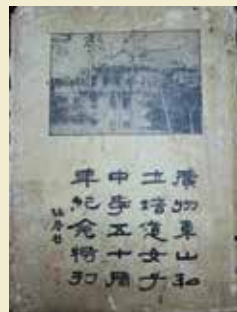 廣州東山私
立培道女子
中學五十周
年紀念特刊